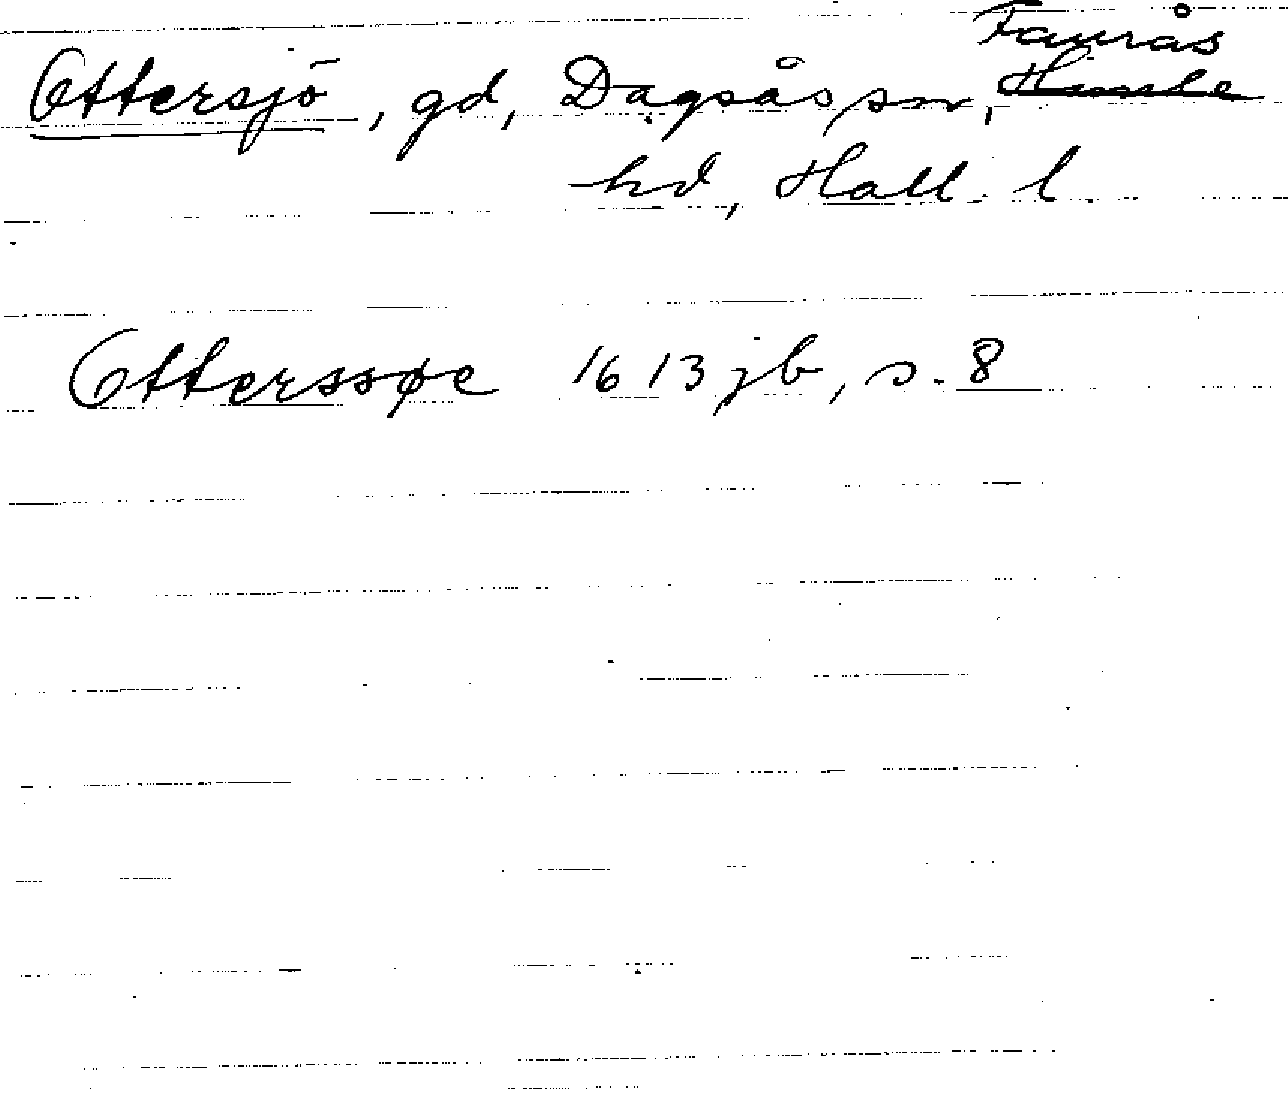 Faurås
Ottersjö, gd, Dagsås sn, Himle
hd, Hall. l.
Otterssøe 1613 jb, s. 8